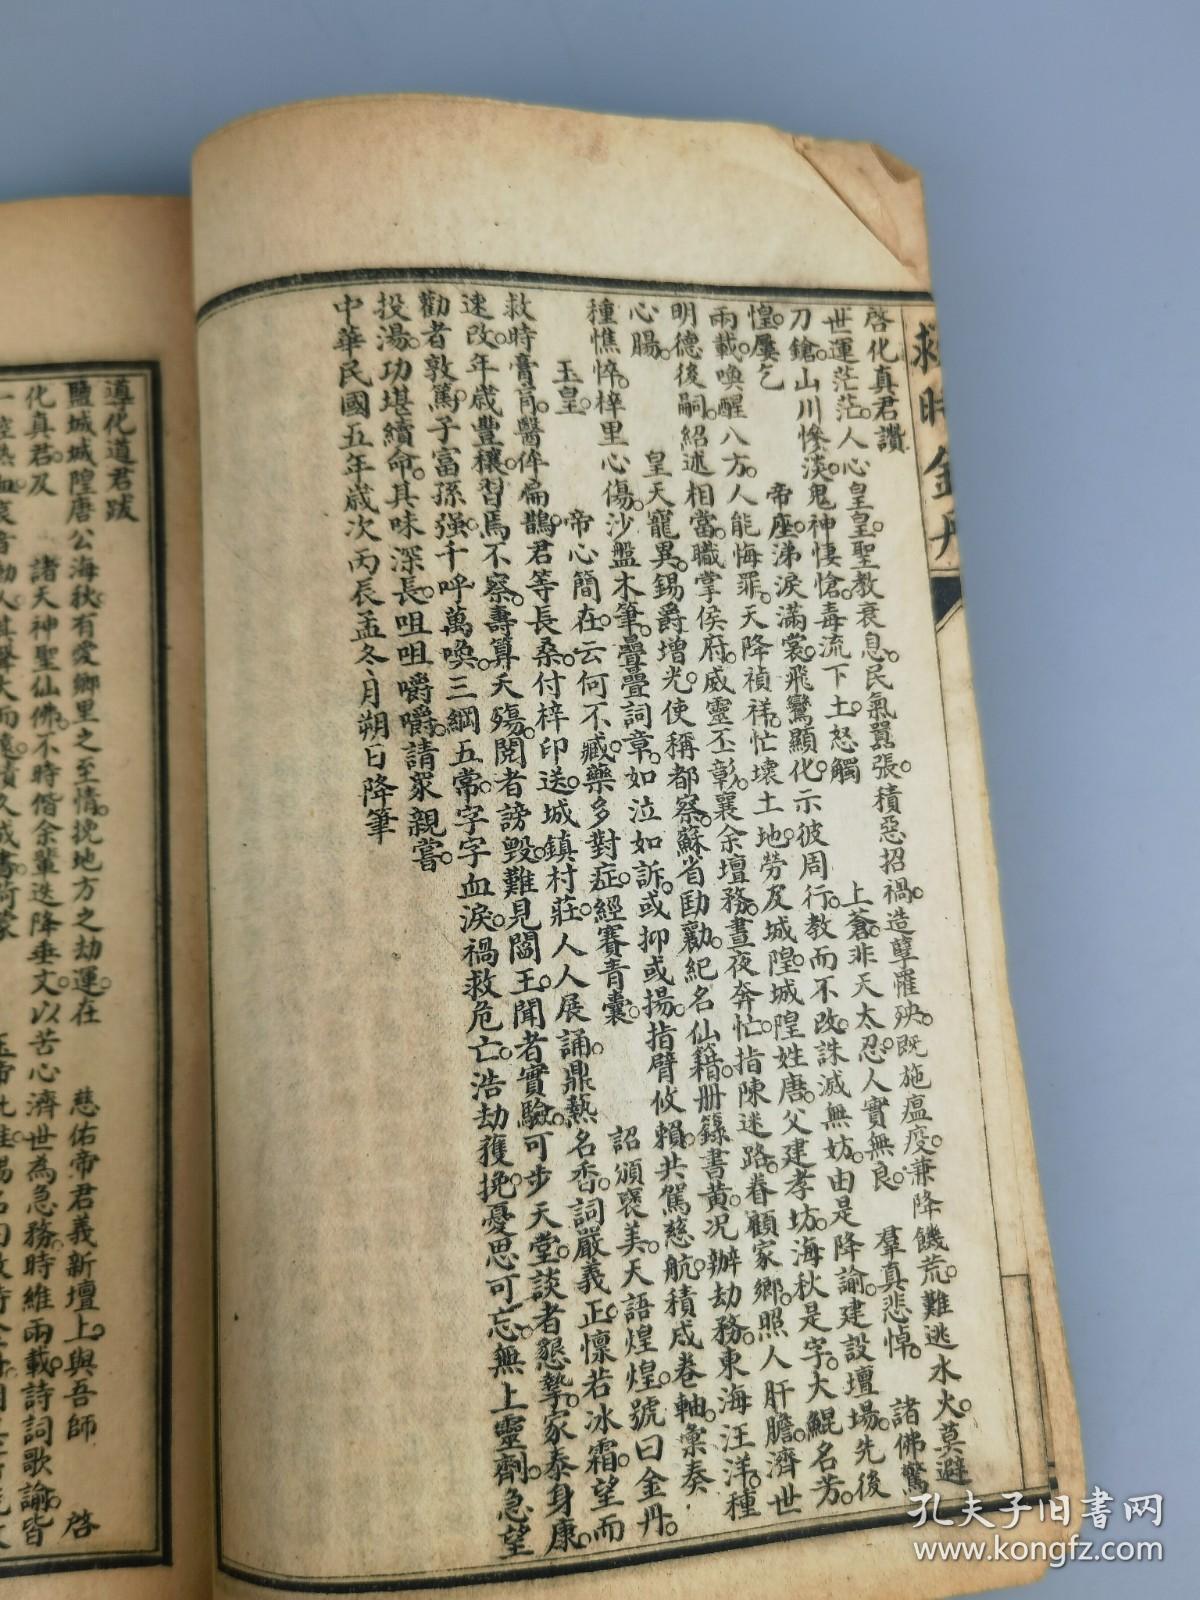 救時金丹
啓化真君讚
世運茫茫。人心皇皇。聖教衰息。民氣囂張。積惡招禍。造孽罹殃。既施瘟疫。兼降饑荒。難逃水火。莫避
刀鎗。山川慘淡。鬼神悽愴。毒流下土。怒觸　上蒼。非天太忍。人實無良。　羣真悲悼。　諸佛驚
惶。屢乞　帝座。涕淚滿裳。飛鸞顯化。示彼周行。教而不改。誅滅無妨。由是降諭。建設壇場。先後
兩載。喚醒八方。人能悔罪。天降禎祥。忙壞土地。勞及城隍。城隍姓唐。父建孝坊。海秋是字。大鯤名芳。
明德後嗣。紹述相當。職掌侯府。威靈丕彰。襄余壇務。晝夜奔忙。指陳迷路。眷顧家鄉。照人肝膽。濟世
心腸。　皇天寵異。錫爵增光。使稱都察。蘇省劻勷。紀名仙籍。冊籙書黃。況辦劫務。東海汪洋。種
種憔悴。梓里心傷。沙盤木筆。疊疊詞章。如泣如訴。或抑或揚。指臂攸賴。共駕慈航。積成卷軸。彙奏
玉皇　帝心簡在。云何不臧。藥多對症。經賽青囊。　詔頒褒美。天語煌煌。號曰金丹。
救時膏肓。醫侔扁鵲。君等長桑。付梓印送。城鎮村莊。人人展誦。鼎熱名香。詞嚴義正。懍若冰霜。望而
速改。年歲豐穰。習焉不察。壽算夭殤。閱者謗毀。難見閻王。聞者實驗。可步天堂。談者懇摯。家泰身康。
勸者敦篤。子富孫强。千呼萬喚。三綱五常。字字血淚。禍救危亡。浩劫獲挽。憂思可忘。無上靈劑。急望
投湯。功堪續命。其味深長。咀咀嚼嚼。請眾親嘗。
中華民國五年歲次丙辰孟冬月朔日降筆
導化道君跋
鹽城城隍唐公海秋有愛鄉里之至情。挽地方之劫運。在　慈佑帝君義新壇上。與吾師　啓
化真君。及　諸天神聖仙佛。不時偕余輩迭降垂文。以苦心濟世為急務。時維兩載。詩詞歌諭。皆
孔夫子旧书网
www.kongfz.com